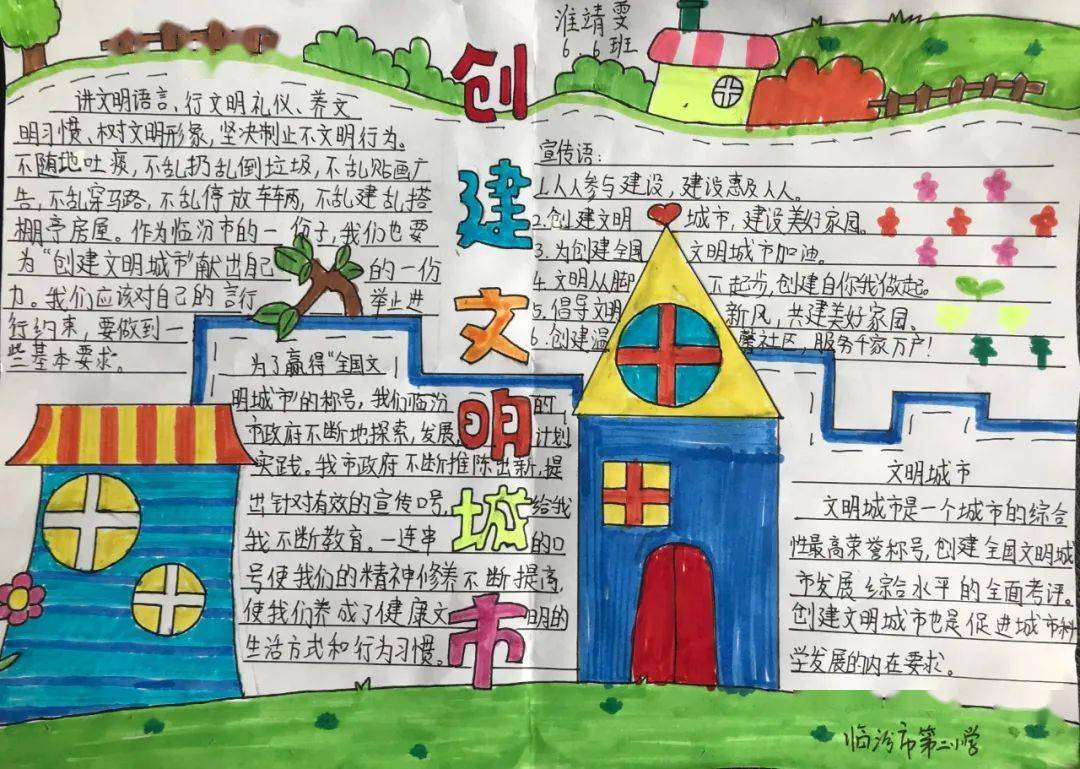 创建文明城市
淮靖雯
6.6班
讲文明语言、行文明礼仪、养文
明习惯、树文明形象,坚决制止不文明行为。
不随地吐痰,不乱扔乱倒垃圾,不乱贴画广
告,不乱穿马路,不乱停放车辆,不乱建乱搭
棚亭房屋。作为临汾市的一份子,我们也要
为“创建文明城市”献出自己的一份
力。我们应该对自己的言行举止进
行约束,要做到一
些基本要求。
为了赢得“全国文
明城市”的称号,我们临汾的
市政府不断地探索,发展,计划
实践。我市政府不断推陈出新,提
出针对有效的宣传口号,给我
我不断教育。一连串的口
号使我们的精神修养不断提高,
使我们养成了健康文明的
生活方式和行为习惯。
宣传语:
1.人人参与建设,建设惠及人人。
2.创建文明城市,建设美好家园。
3.为创建全国文明城市加油。
4.文明从脚不起步,创建自你我做起。
5.倡导文明新风,共建美好家园。
6.创建温馨社区,服务千家万户!
文明城市
文明城市是一个城市的综合
性最高荣誉称号,创建全国文明城
市发展综合水平的全面考评。
创建文明城市也是促进城市科
学发展的内在要求。
临汾市第二小学